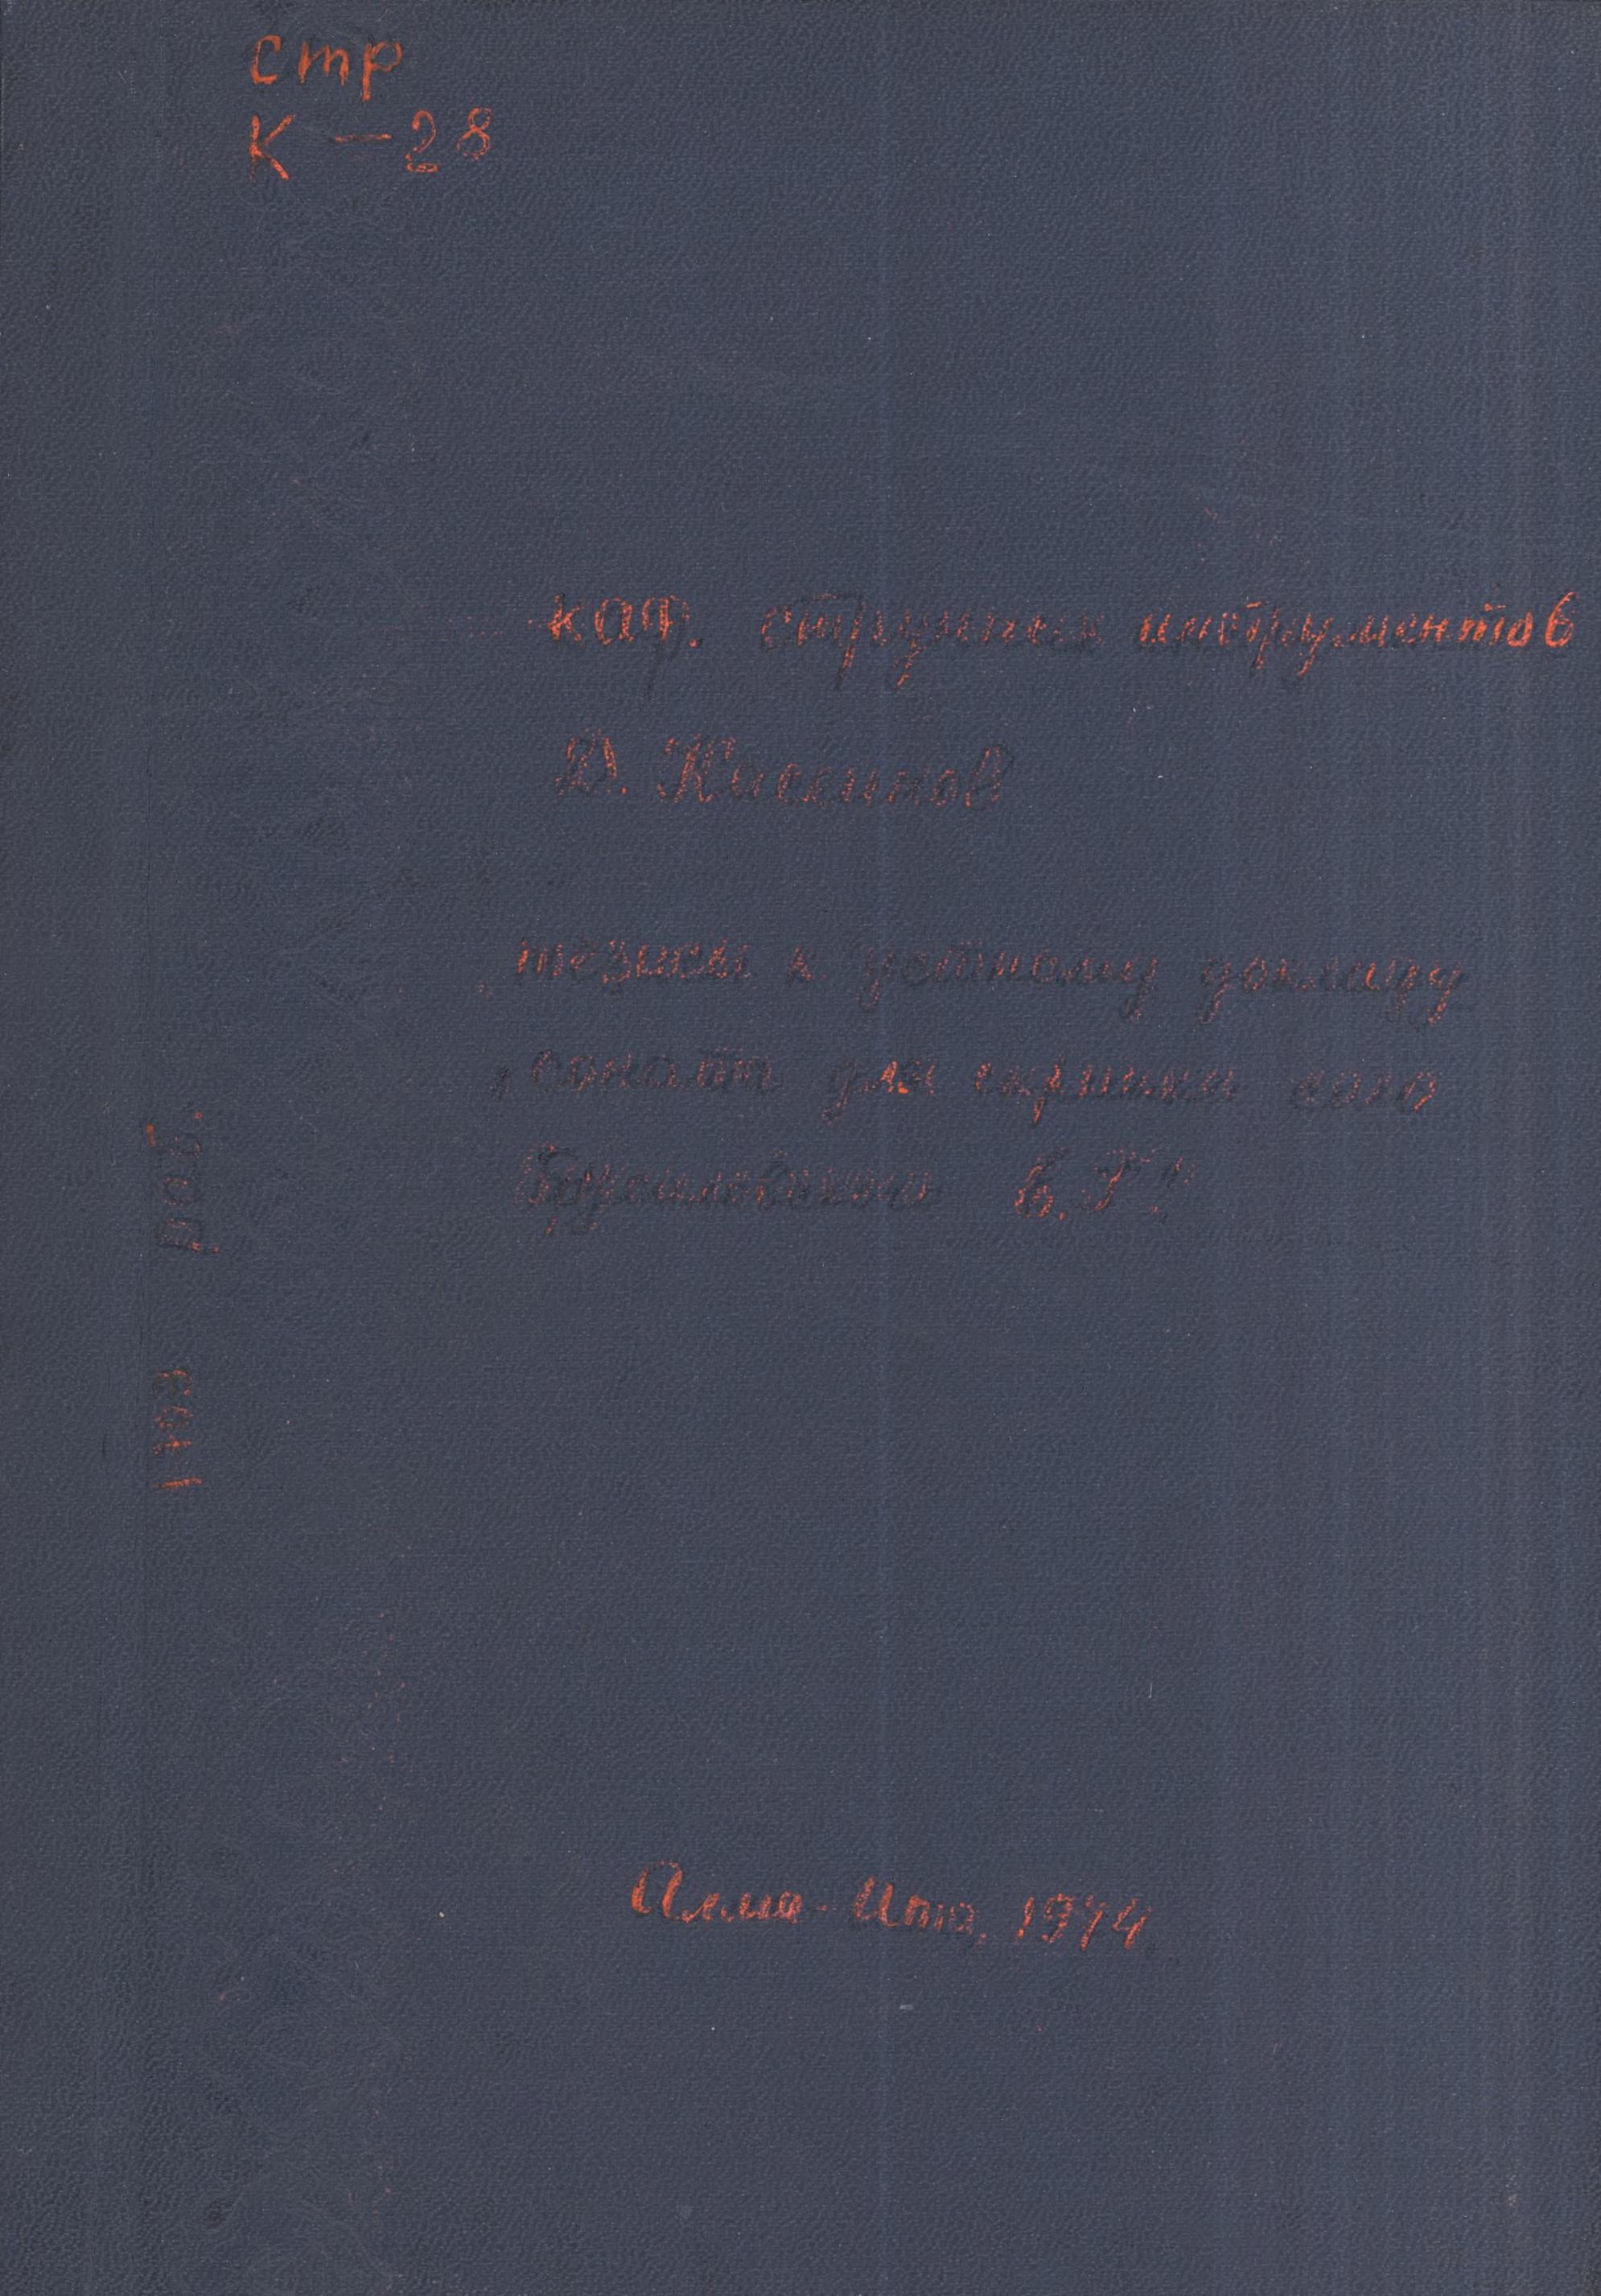 стр
К — 28
каф. струнных инструментов
Д. Касеинов
тезисы к устному докладу
„Сонаты для скрипки соло
Брусиловского Е. Г."
раб.
Алма-Ата, 1974